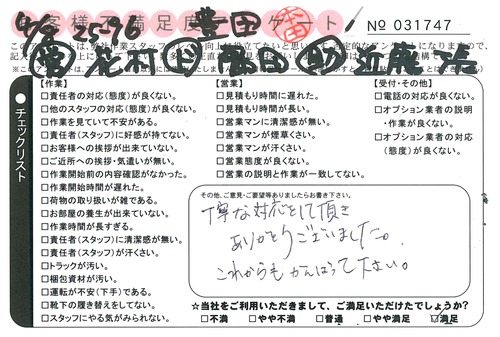 お客様不満足度アンケート
4/8 25-96 豊田
No 031747
このアンケートは、弊社作業スタッフの
チェックリスト
【作業】
□責任者の対応(態度)が良くない。
□他のスタッフの対応(態度)が良くない。
□作業を見ていて不安がある。
□責任者(スタッフ)に好感が持てない。
□お客様への挨拶が出来ていない。
□ご近所への挨拶・気遣いが無い。
□作業開始前の内容確認がなかった。
□作業開始時間が遅れた。
□荷物の取り扱いが雑である。
□お部屋の養生が出来ていない。
□作業時間が長すぎる。
□責任者(スタッフ)に清潔感が無い。
□責任者(スタッフ)が汗くさい。
□トラックが汚い。
□梱包資材が汚い。
□運転が不安(下手)である。
□靴下の履き替えをしてない。
□スタッフにやる気がみられない。
【営業】
□見積もり時間に遅れた。
□見積もり時間が長い。
□営業マンに清潔感が無い。
□営業マンが煙草くさい。
□営業マンが汗くさい。
□営業態度が良くない。
□営業の説明と作業が一致してない。
【受付・その他】
□電話の対応が良くない。
□オプション業者の説明
・作業が良くない。
□オプション業者の対応
(態度)が良くない。
その他、ご意見・ご要望等ありましたらお書き下さい。
丁寧な対応をして頂き
ありがとうございました。
これからもがんばって下さい。
☆当社をご利用いただきまして、ご満足いただけたでしょうか?
□不満 □やや不満 □普通 □やや満足 □満足